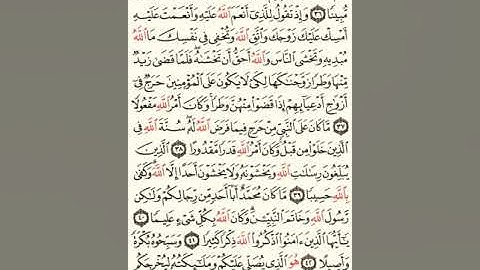 مُّبِينًا ٣٦ وَإِذْ تَقُولُ لِلَّذِىٓ أَنْعَمَ ٱللَّهُ عَلَيْهِ وَأَنْعَمْتَ عَلَيْهِ
أَمْسِكْ عَلَيْكَ زَوْجَكَ وَٱتَّقِ ٱللَّهَ وَتُخْفِى فِى نَفْسِكَ مَا ٱللَّهُ
مُبْدِيهِ وَتَخْشَى ٱلنَّاسَ وَٱللَّهُ أَحَقُّ أَن تَخْشَىٰهُ فَلَمَّا قَضَىٰ زَيْدٌ
مِّنْهَا وَطَرًا زَوَّجْنَٰكَهَا لِكَىْ لَا يَكُونَ عَلَى ٱلْمُؤْمِنِينَ حَرَجٌ فِىٓ
أَزْوَٰجِ أَدْعِيَآئِهِمْ إِذَا قَضَوْا۟ مِنْهُنَّ وَطَرًا وَكَانَ أَمْرُ ٱللَّهِ مَفْعُولًا
٣٧ مَّا كَانَ عَلَى ٱلنَّبِىِّ مِنْ حَرَجٍ فِيمَا فَرَضَ ٱللَّهُ لَهُۥ سُنَّةَ ٱللَّهِ فِى
ٱلَّذِينَ خَلَوْا۟ مِن قَبْلُ وَكَانَ أَمْرُ ٱللَّهِ قَدَرًا مَّقْدُورًا ٣٨ ٱلَّذِينَ
يُبَلِّغُونَ رِسَٰلَٰتِ ٱللَّهِ وَيَخْشَوْنَهُۥ وَلَا يَخْشَوْنَ أَحَدًا إِلَّا ٱللَّهَ وَكَفَىٰ
بِٱللَّهِ حَسِيبًا ٣٩ مَّا كَانَ مُحَمَّدٌ أَبَآ أَحَدٍ مِّن رِّجَالِكُمْ وَلَٰكِن
رَّسُولَ ٱللَّهِ وَخَاتَمَ ٱلنَّبِيِّـۧنَ وَكَانَ ٱللَّهُ بِكُلِّ شَىْءٍ عَلِيمًا ٤٠
يَٰٓأَيُّهَا ٱلَّذِينَ ءَامَنُوا۟ ٱذْكُرُوا۟ ٱللَّهَ ذِكْرًا كَثِيرًا ٤١ وَسَبِّحُوهُ بُكْرَةً
وَأَصِيلًا ٤٢ هُوَ ٱلَّذِى يُصَلِّى عَلَيْكُمْ وَمَلَٰٓئِكَتُهُۥ لِيُخْرِجَكُم